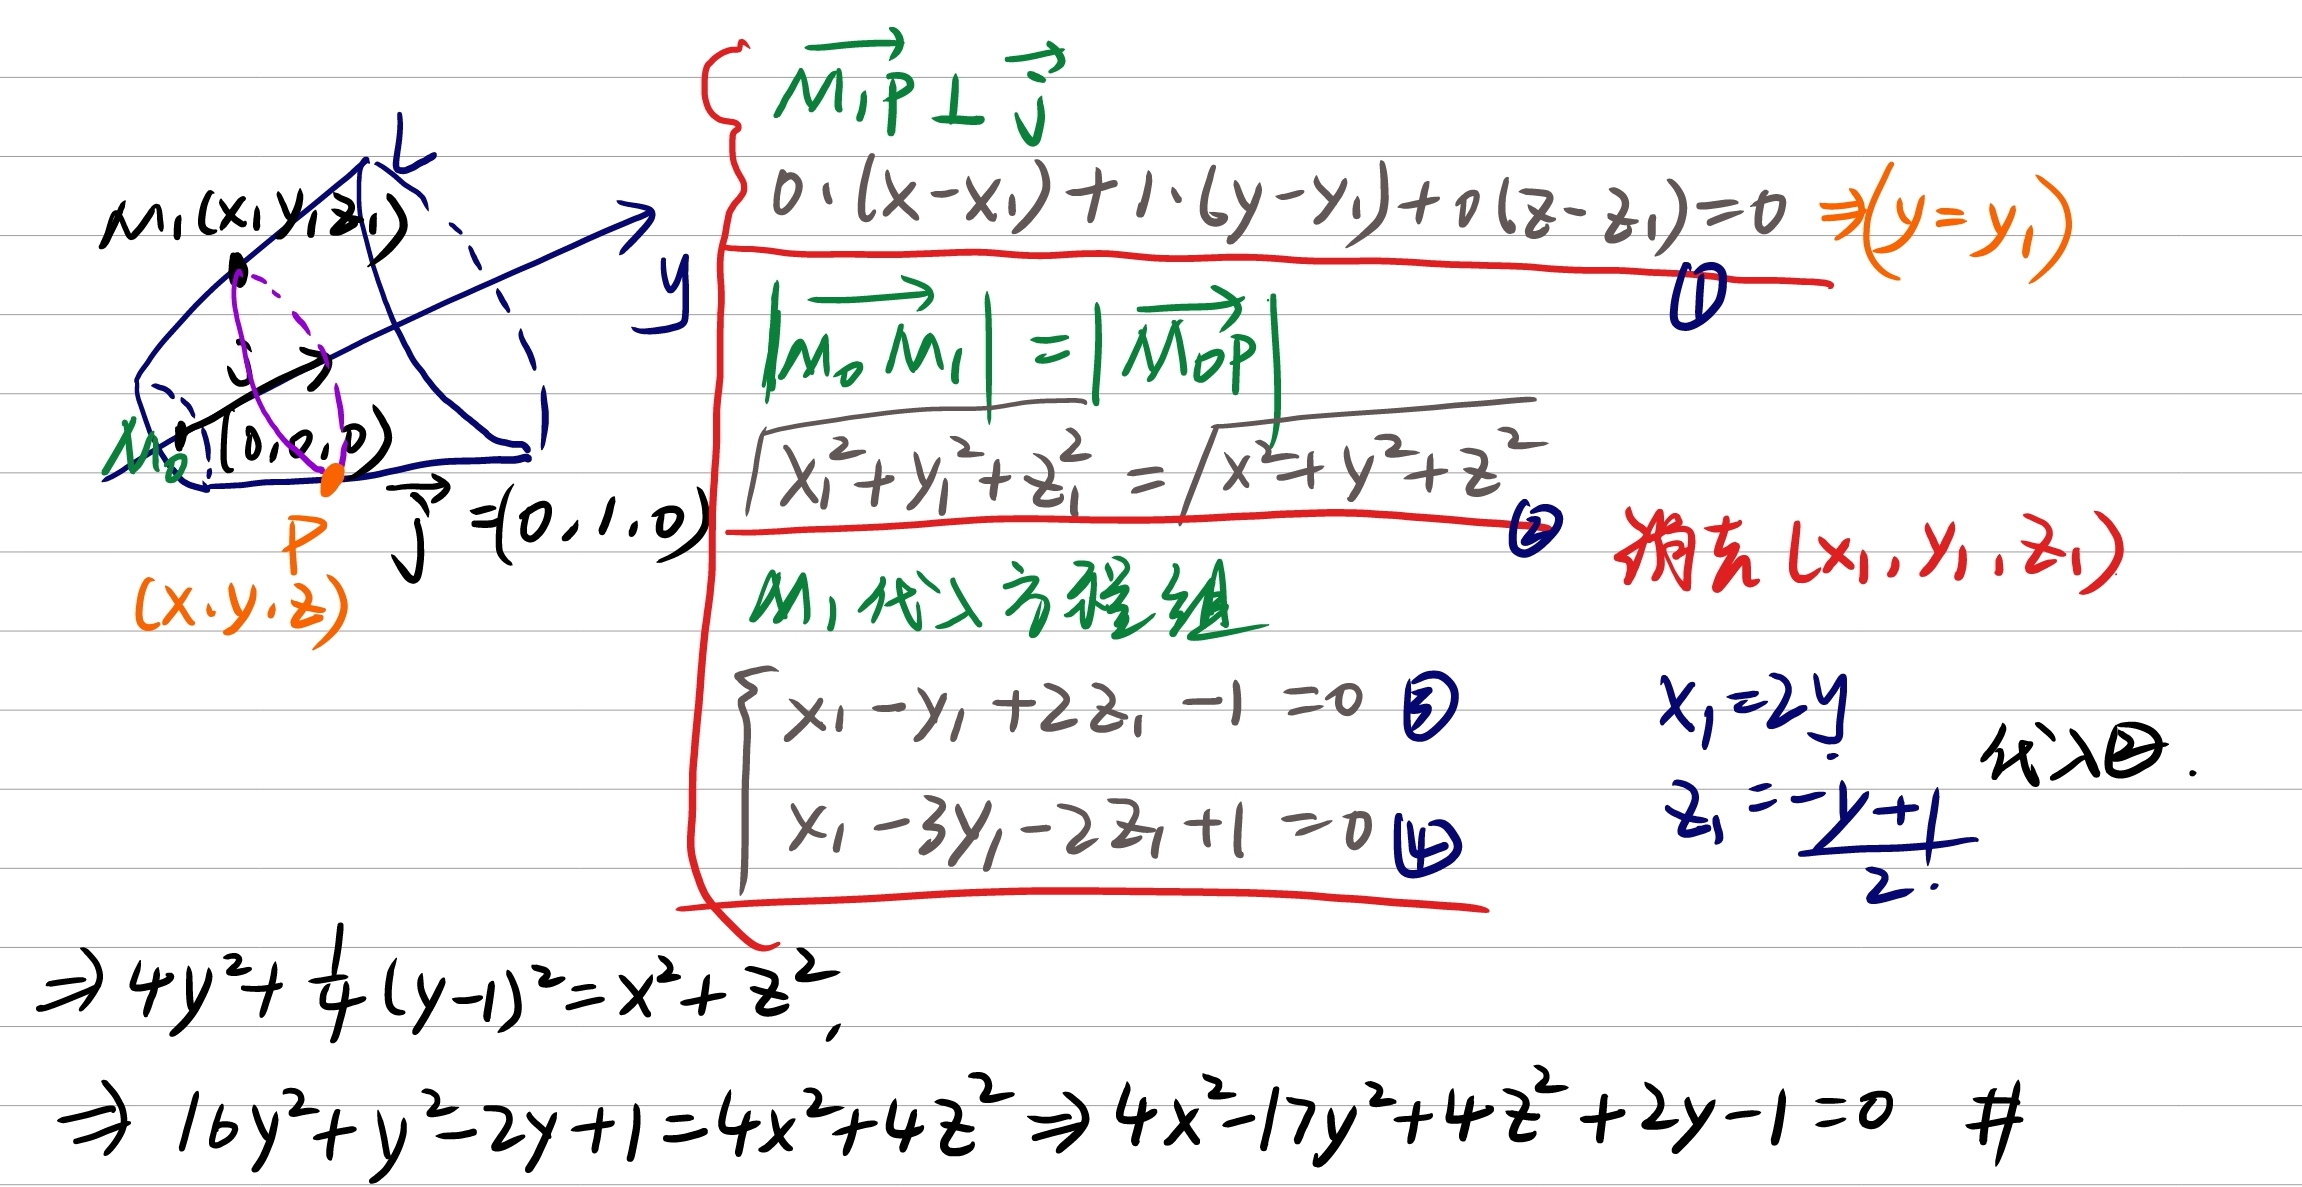 L
M₁(x₁ y₁ z₁)
y
j
M₀ (0,0,0)
P
(x.y.z)
j⃗ =(0,1,0)
M₁P⃗ ⊥ j⃗
0·(x-x₁)+1·(y-y₁)+0(z-z₁)=0 ⇒(y=y₁)
①
|M₀M₁⃗| = |M₀P⃗|
√x₁²+y₁²+z₁² = √x²+y²+z²
②
消去 (x₁, y₁, z₁)
M₁代入方程组
{ x₁-y₁+2z₁-1=0 ③
x₁-3y₁-2z₁+1=0 ④
x₁=2y
z₁=-y+1/2.
代入②.
⇒ 4y²+1/4(y-1)²=x²+z²,
⇒ 16y²+y²-2y+1=4x²+4z² ⇒ 4x²-17y²+4z²+2y-1=0 #